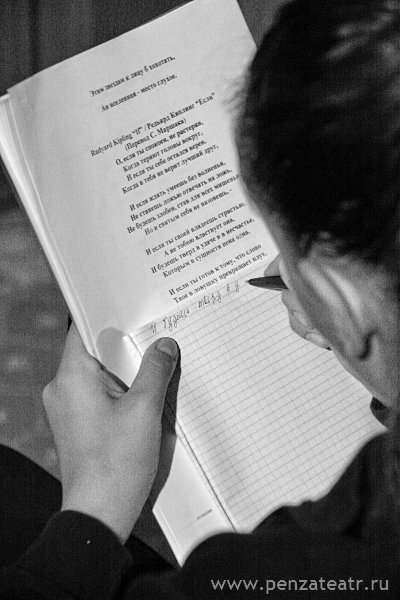 Этим звездам к лицу б хохотать,
Ан вселенная - место глухое.
Rudyard Kipling "If" / Редьярд Киплинг "Если"
(Перевод С. Маршака)
О, если ты спокоен, не растерян,
Когда теряют головы вокруг,
И если ты себе остался верен,
Когда в тебя не верит лучший друг,
И если ждать умеешь без волненья,
Не станешь ложью отвечать на ложь,
Не будешь злобен, став для всех мишенью,
Но и святым себя не назовешь, -
И если ты своей владеешь страстью,
А не тобою властвует она,
И будешь тверд в удаче и в несчастье,
Которым в сущности цена одна,
И если ты готов к тому, что слово
Твое в ловушку превращает плут,
И
www.penzateatr.ru